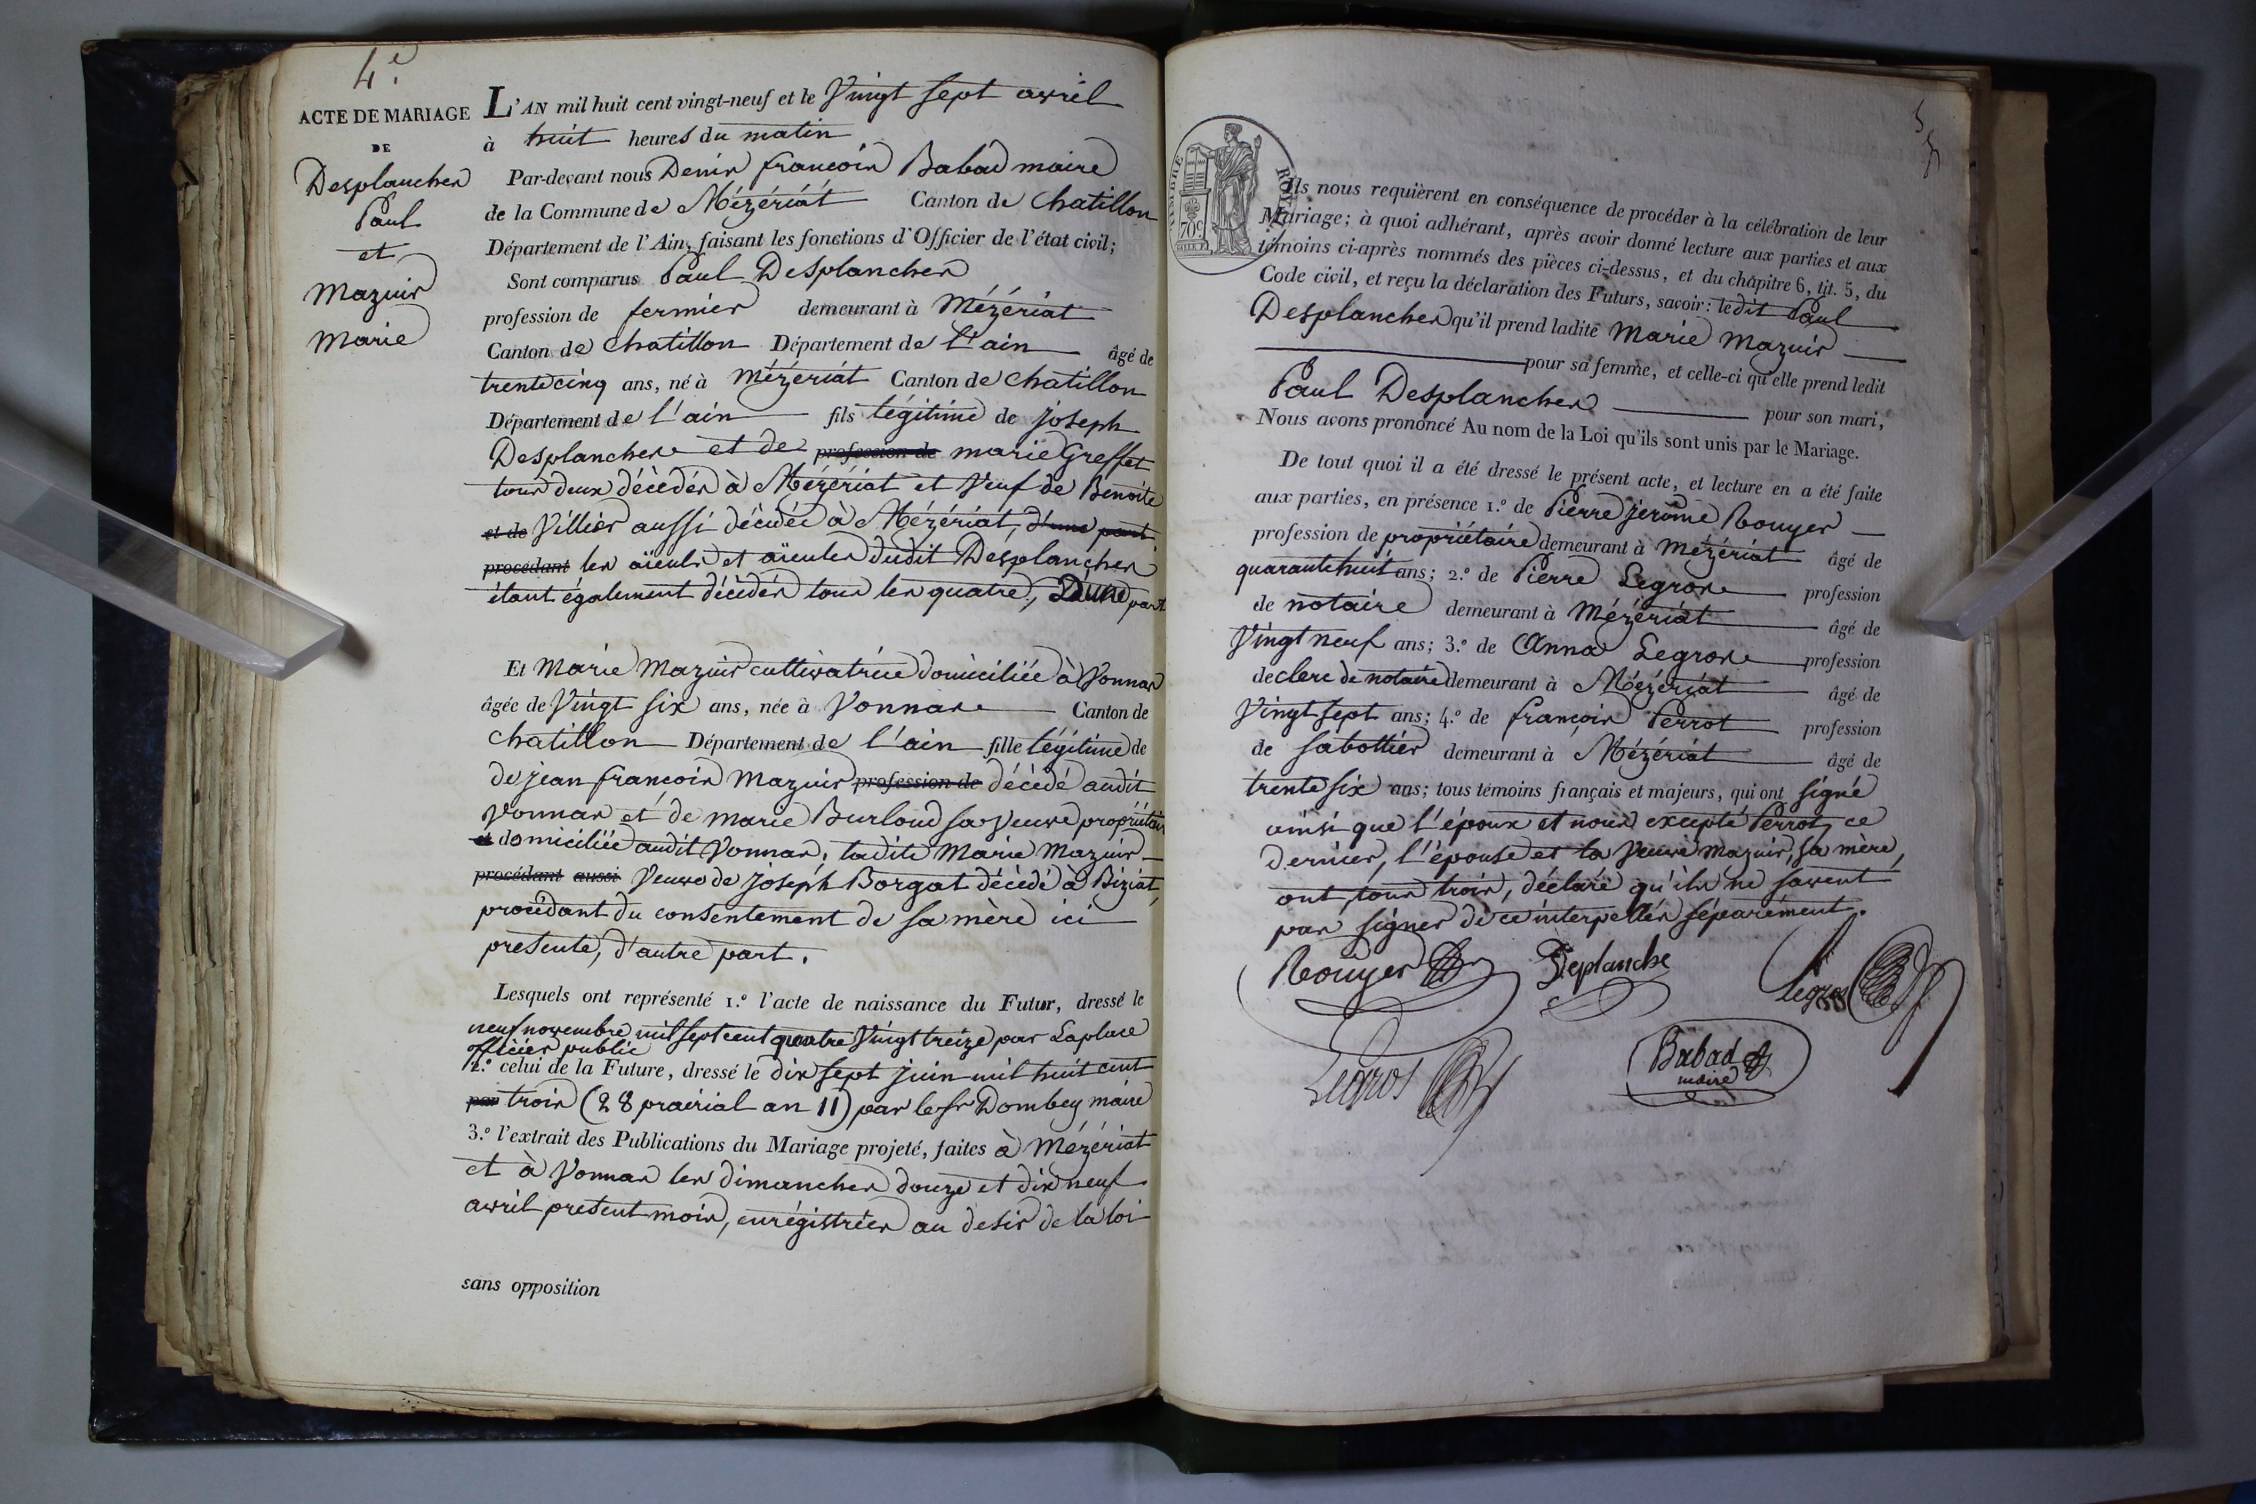 4.e
ACTE DE MARIAGE
DE
Desplanches
Paul
et
Mazuir
Marie
L'AN mil huit cent vingt-neuf et le Vingt sept avril
à huit heures du matin
Par-devant nous Denis françois Babad maire
de la Commune de Mézériát Canton de Chatillon
Département de l'Ain, faisant les fonctions d'Officier de l'état civil;
Sont comparus Paul Desplanches
profession de fermier demeurant à Mézériat
Canton de Chatillon Département de l'ain âgé de
trente cinq ans, né à Mézeriát Canton de Chatillon
Département de l'ain fils légitime de joseph
Desplanches et de profession de marie Greffet
tous deux décèdés à Mézériat et Veuf de Benoite
et de Villier aussi décédée à Mézériat, d'une part
procédant les aïeuls et aïeules dudit Desplanches
étant également décèdés tous les quatre, D'une part
Et Marie Mazuir cultivatrice domiciliée à Vonnas
âgée de Vingt six ans, née à Vonnas Canton de
chatillon Département de l'ain fille légitime de
de jean françois Mazuir profession de décèdé audit
Vonnas et de marie Burloud sa Veuve propriétaire
et domiciliée audit Vonnas, ladite Marie Mazuir
procédant aussi Veuve de joseph Borgat décèdé à Biziat,
procèdant du consentement de sa mère ici
presente, d'autre part.
Lesquels ont représenté 1.º l'acte de naissance du Futur, dressé le
neuf novembre mil sept cent quatre Vingt treize par Laplace
officier public
2.º celui de la Future, dressé le dix sept juin mil huit cent
par trois (28 prairial an 11) par le Sr Dombey maire
3.º l'extrait des Publications du Mariage projeté, faites à Mézériat
et à Vonnas les dimanches douze et dix neuf
avril present mois, enrégistrées au desir de la loi
sans opposition
TIMBRE ROYAL
70c
Ils nous requièrent en conséquence de procéder à la célébration de leur
Mariage; à quoi adhérant, après avoir donné lecture aux parties et aux
témoins ci-après nommés des pièces ci-dessus, et du chapitre 6, tit. 5, du
Code civil, et reçu la déclaration des Futurs, savoir: ledit Paul
Desplanches qu'il prend ladite Marie Mazuir
pour sa femme, et celle-ci qu'elle prend ledit
Paul Desplanches pour son mari,
Nous avons prononcé Au nom de la Loi qu'ils sont unis par le Mariage.
De tout quoi il a été dressé le présent acte, et lecture en a été faite
aux parties, en présence 1.º de Pierre jérôme Rouyer
profession de propriétaire demeurant à Mézériat âgé de
quarante huit ans; 2.º de Pierre Legros profession
de notaire demeurant à Mézériát âgé de
Vingt neuf ans; 3.º de Anna Legros profession
de clerc de notaire demeurant à Mézériat âgé de
Vingt sept ans; 4.º de françois Perrot profession
de sabottier demeurant à Mézériat âgé de
trente six ans; tous témoins français et majeurs, qui ont signé
ainsi que l'époux et nous excepté Perrot, ce
dernier, l'épouse et la Veuve Mazuir, sa mère,
ont, tous trois, déclaré qu'ils ne savent
pas signer de ce interpellés séparément.
Rouyer Deplanche Legros
Legros Babad
maire